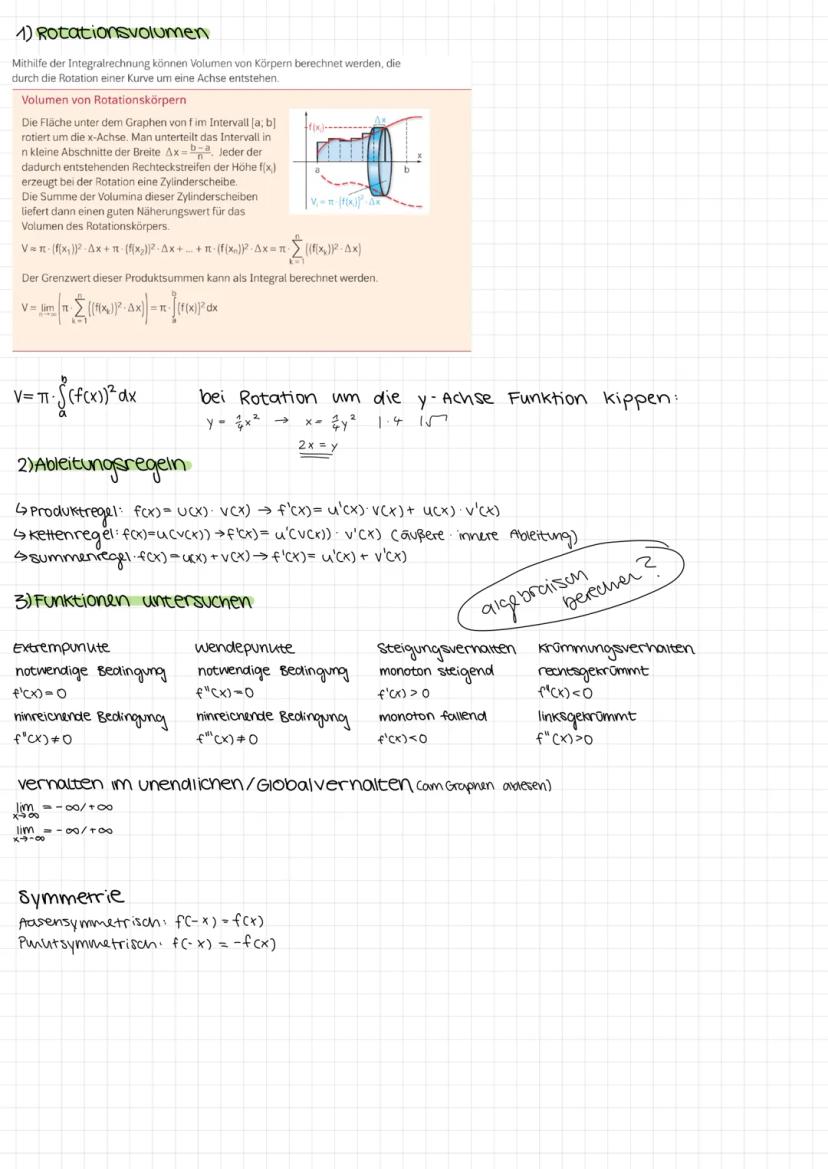 1) Rotationsvolumen
Mithilfe der Integralrechnung können Volumen von Körpern berechnet werden, die
durch die Rotation einer Kurve um eine Achse entstehen.
Volumen von Rotationskörpern
Die Fläche unter dem Graphen von f im Intervall [a; b]
rotiert um die x-Achse. Man unterteilt das Intervall in
n kleine Abschnitte der Breite Δx = (b-a)/n. Jeder der
dadurch entstehenden Rechteckstreifen der Höhe f(xᵢ)
erzeugt bei der Rotation eine Zylinderscheibe.
Die Summe der Volumina dieser Zylinderscheiben
liefert dann einen guten Näherungswert für das
Volumen des Rotationskörpers.
f(xᵢ)
Δx
x
a
b
Vᵢ = π · (f(xᵢ))² · Δx
V ≈ π · (f(x₁))² · Δx + π · (f(x₂))² · Δx + ... + π · (f(xₙ))² · Δx = π · ∑ₖ₌₁ⁿ ((f(xₖ))² · Δx)
Der Grenzwert dieser Produktsummen kann als Integral berechnet werden.
V = lim n→∞ (π · ∑ₖ₌₁ⁿ ((f(xₖ))² · Δx)) = π · ∫ₐᵇ (f(x))² dx
V = π · ∫ₐᵇ (f(x))² dx
bei Rotation um die y-Achse Funktion kippen:
y = 1/4 x² → x = 1/4 y² | · 4 | √
2x = y
2) Ableitungsregeln
↳ Produktregel: f(x) = u(x) · v(x) → f'(x) = u'(x) · v(x) + u(x) · v'(x)
↳ Kettenregel: f(x) = u(v(x)) → f'(x) = u'(v(x)) · v'(x) (äußere · innere Ableitung)
↳ Summenregel: f(x) = u(x) + v(x) → f'(x) = u'(x) + v'(x)
algebraisch
berechnen?
3) Funktionen untersuchen
Extrempunkte
notwendige Bedingung
f'(x) = 0
hinreichende Bedingung
f''(x) ≠ 0
Wendepunkte
notwendige Bedingung
f''(x) = 0
hinreichende Bedingung
f'''(x) ≠ 0
Steigungsverhalten
monoton steigend
f'(x) > 0
monoton fallend
f'(x) < 0
Krümmungsverhalten
rechtsgekrümmt
f''(x) < 0
linksgekrümmt
f''(x) > 0
Verhalten im unendlichen/Globalverhalten (am Graphen ablesen)
lim x→∞ = -∞/+∞
lim x→-∞ = -∞/+∞
Symmetrie
Achsensymmetrisch: f(-x) = f(x)
Punktsymmetrisch: f(-x) = -f(x)